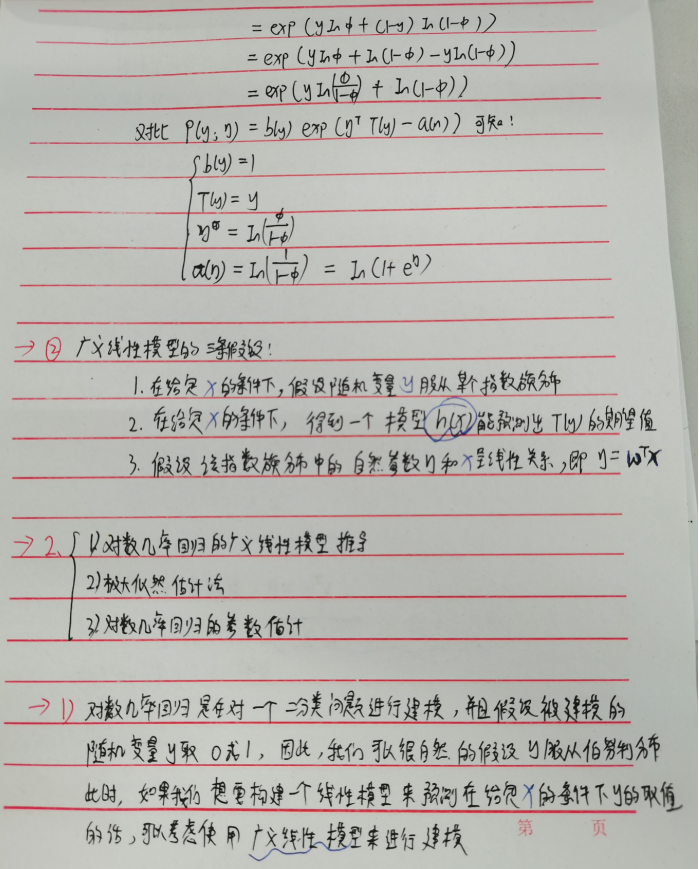 = exp (y ln φ + (1-y) ln (1-φ))
= exp (y ln φ + ln (1-φ) - y ln (1-φ))
= exp (y ln(φ/1-φ) + ln (1-φ))
对比 P(y; η) = b(y) exp (ηᵀ T(y) - a(η)) 可知:
b(y) = 1
T(y) = y
η = ln(φ/1-φ)
a(η) = ln(1/1-φ) = ln (1+ e^η)
→ ② 广义线性模型的三条假设:
1. 在给定 x 的条件下, 假设随机变量 y 服从某个指数族分布
2. 在给定 x 的条件下, 得到一个 模型 h(x) 能预测出 T(y) 的期望值
3. 假设 该指数族分布中的 自然参数 η 和 x 呈线性关系, 即 η = wᵀx
→ 2. { 1) 对数几率回归的广义线性模型 推导
2) 极大似然估计法
3) 对数几率回归的参数估计
→ 1) 对数几率回归是在对一个二分类问题进行建模, 并且假设被建模的
随机变量 y 取 0 或 1, 因此, 我们可以很自然的假设 y 服从伯努利分布
此时, 如果我们 想要构建一个线性模型来预测在给定 x 的条件下 y 的取值
的话, 可以考虑使用 广义线性模型来进行建模
第 页